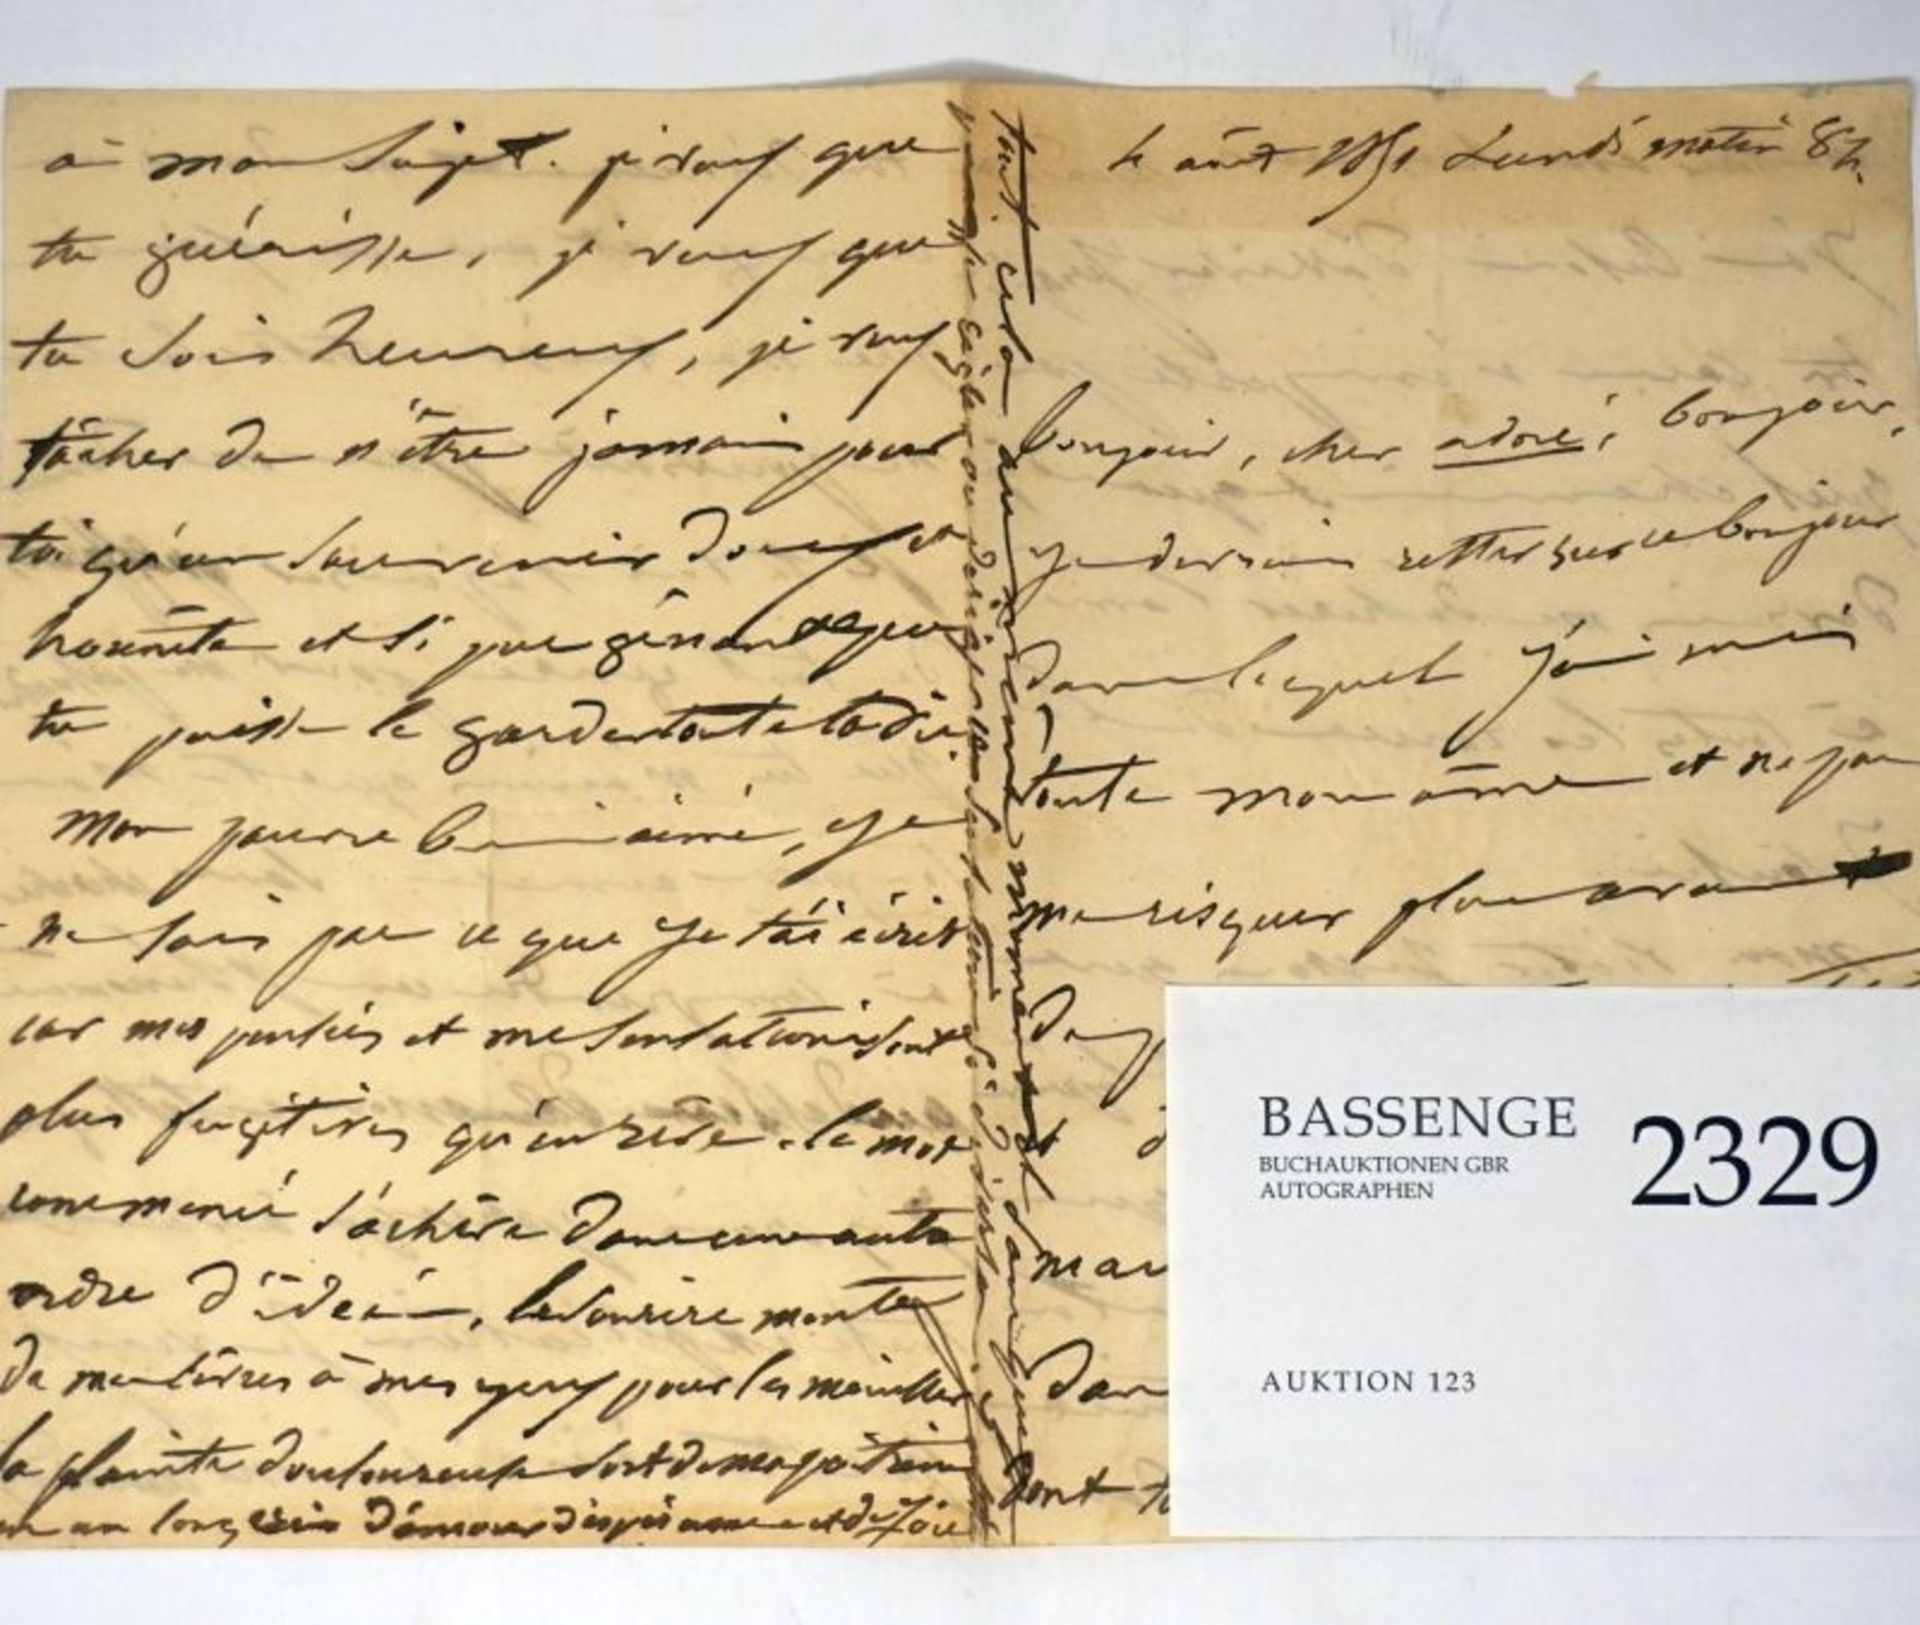 à mon sujet. je veux que
tu guérisse, je veux que
tu sois heureux, je veux
tâcher de n'être jamais pour
toi qu'un souvenir doux et
honnête et si peu gênant que
tu puisse le garder toute ta vie.
Mon pauvre bien aimé, je
ne sais pas ce que je t'ai écrit
car mes pensées et mes sensations sont
plus fugitives qu'un rêve. le mot
commencé s'achève dans une autre
ordre d'idée, le sourire monte
de mes lèvres à mes yeux pour les mouiller
la plainte douloureuse sort de ma poitrine
en un long cri d'amour d'espérance et de joie
tout cela au même moment
4 août 1851 Lundi matin 8 h.
bonjour, cher adoré, bonjour,
je devrais rester sur ce bonjour
dans lequel j'ai mis
toute mon âme et ne pas
me risquer plus avant
de
et
mau
dan
dont t
BASSENGE
BUCHAUKTIONEN GBR
AUTOGRAPHEN
2329
AUKTION 123